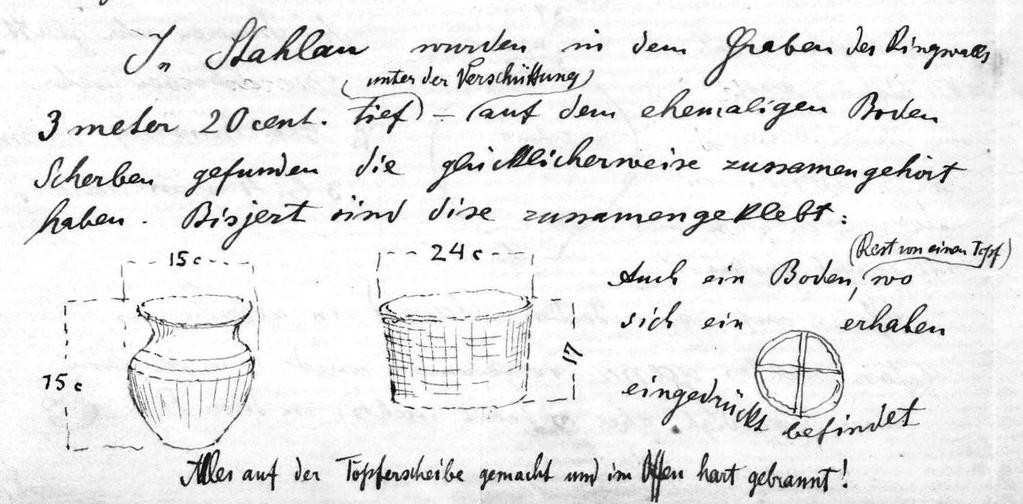 In Stahlau wurden in dem Graben des Ringwalls
(unter der Verschüttung)
3 meter 20 cent. tief) - (auf dem ehemaligen Boden
Scherben gefunden die glücklicherweise zussamengehört
haben. Bisjezt sind dise zussamengeklebt:
15 c
24 c
(Rest von einen Topf)
Auch ein Boden, wo
sich ein erhaben
15 c
17
eingedrückt befindet
Alles auf der Töpferscheibe gemacht und im Offen hart gebrannt!